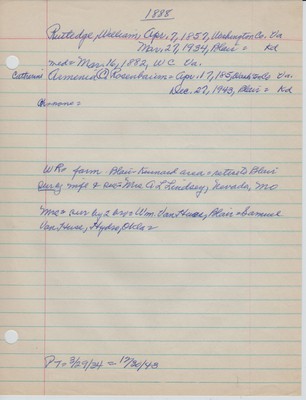 1888
Rutledge, William Apr. 7, 1857, Washington Co. Va
Mar. 27, 1934, Blair = Kd
med = Mar. 16, 1882, W C Va.
Catharine Armenia C Rosenbaum = Apr. 17, 185 Wash Co Va.
Dec. 27, 1943, Blair = Kd
WR = farm - Blair - Kennard area = retired Blair
Surv wife & Mrs A L Lindsey, Nevada, Mo
Mrs = sur by 2 bros Wm Van Huss, Blair & Samuel
Van Huss, Hydro, Okla =
PT = 3/29/34 = 12/30/43